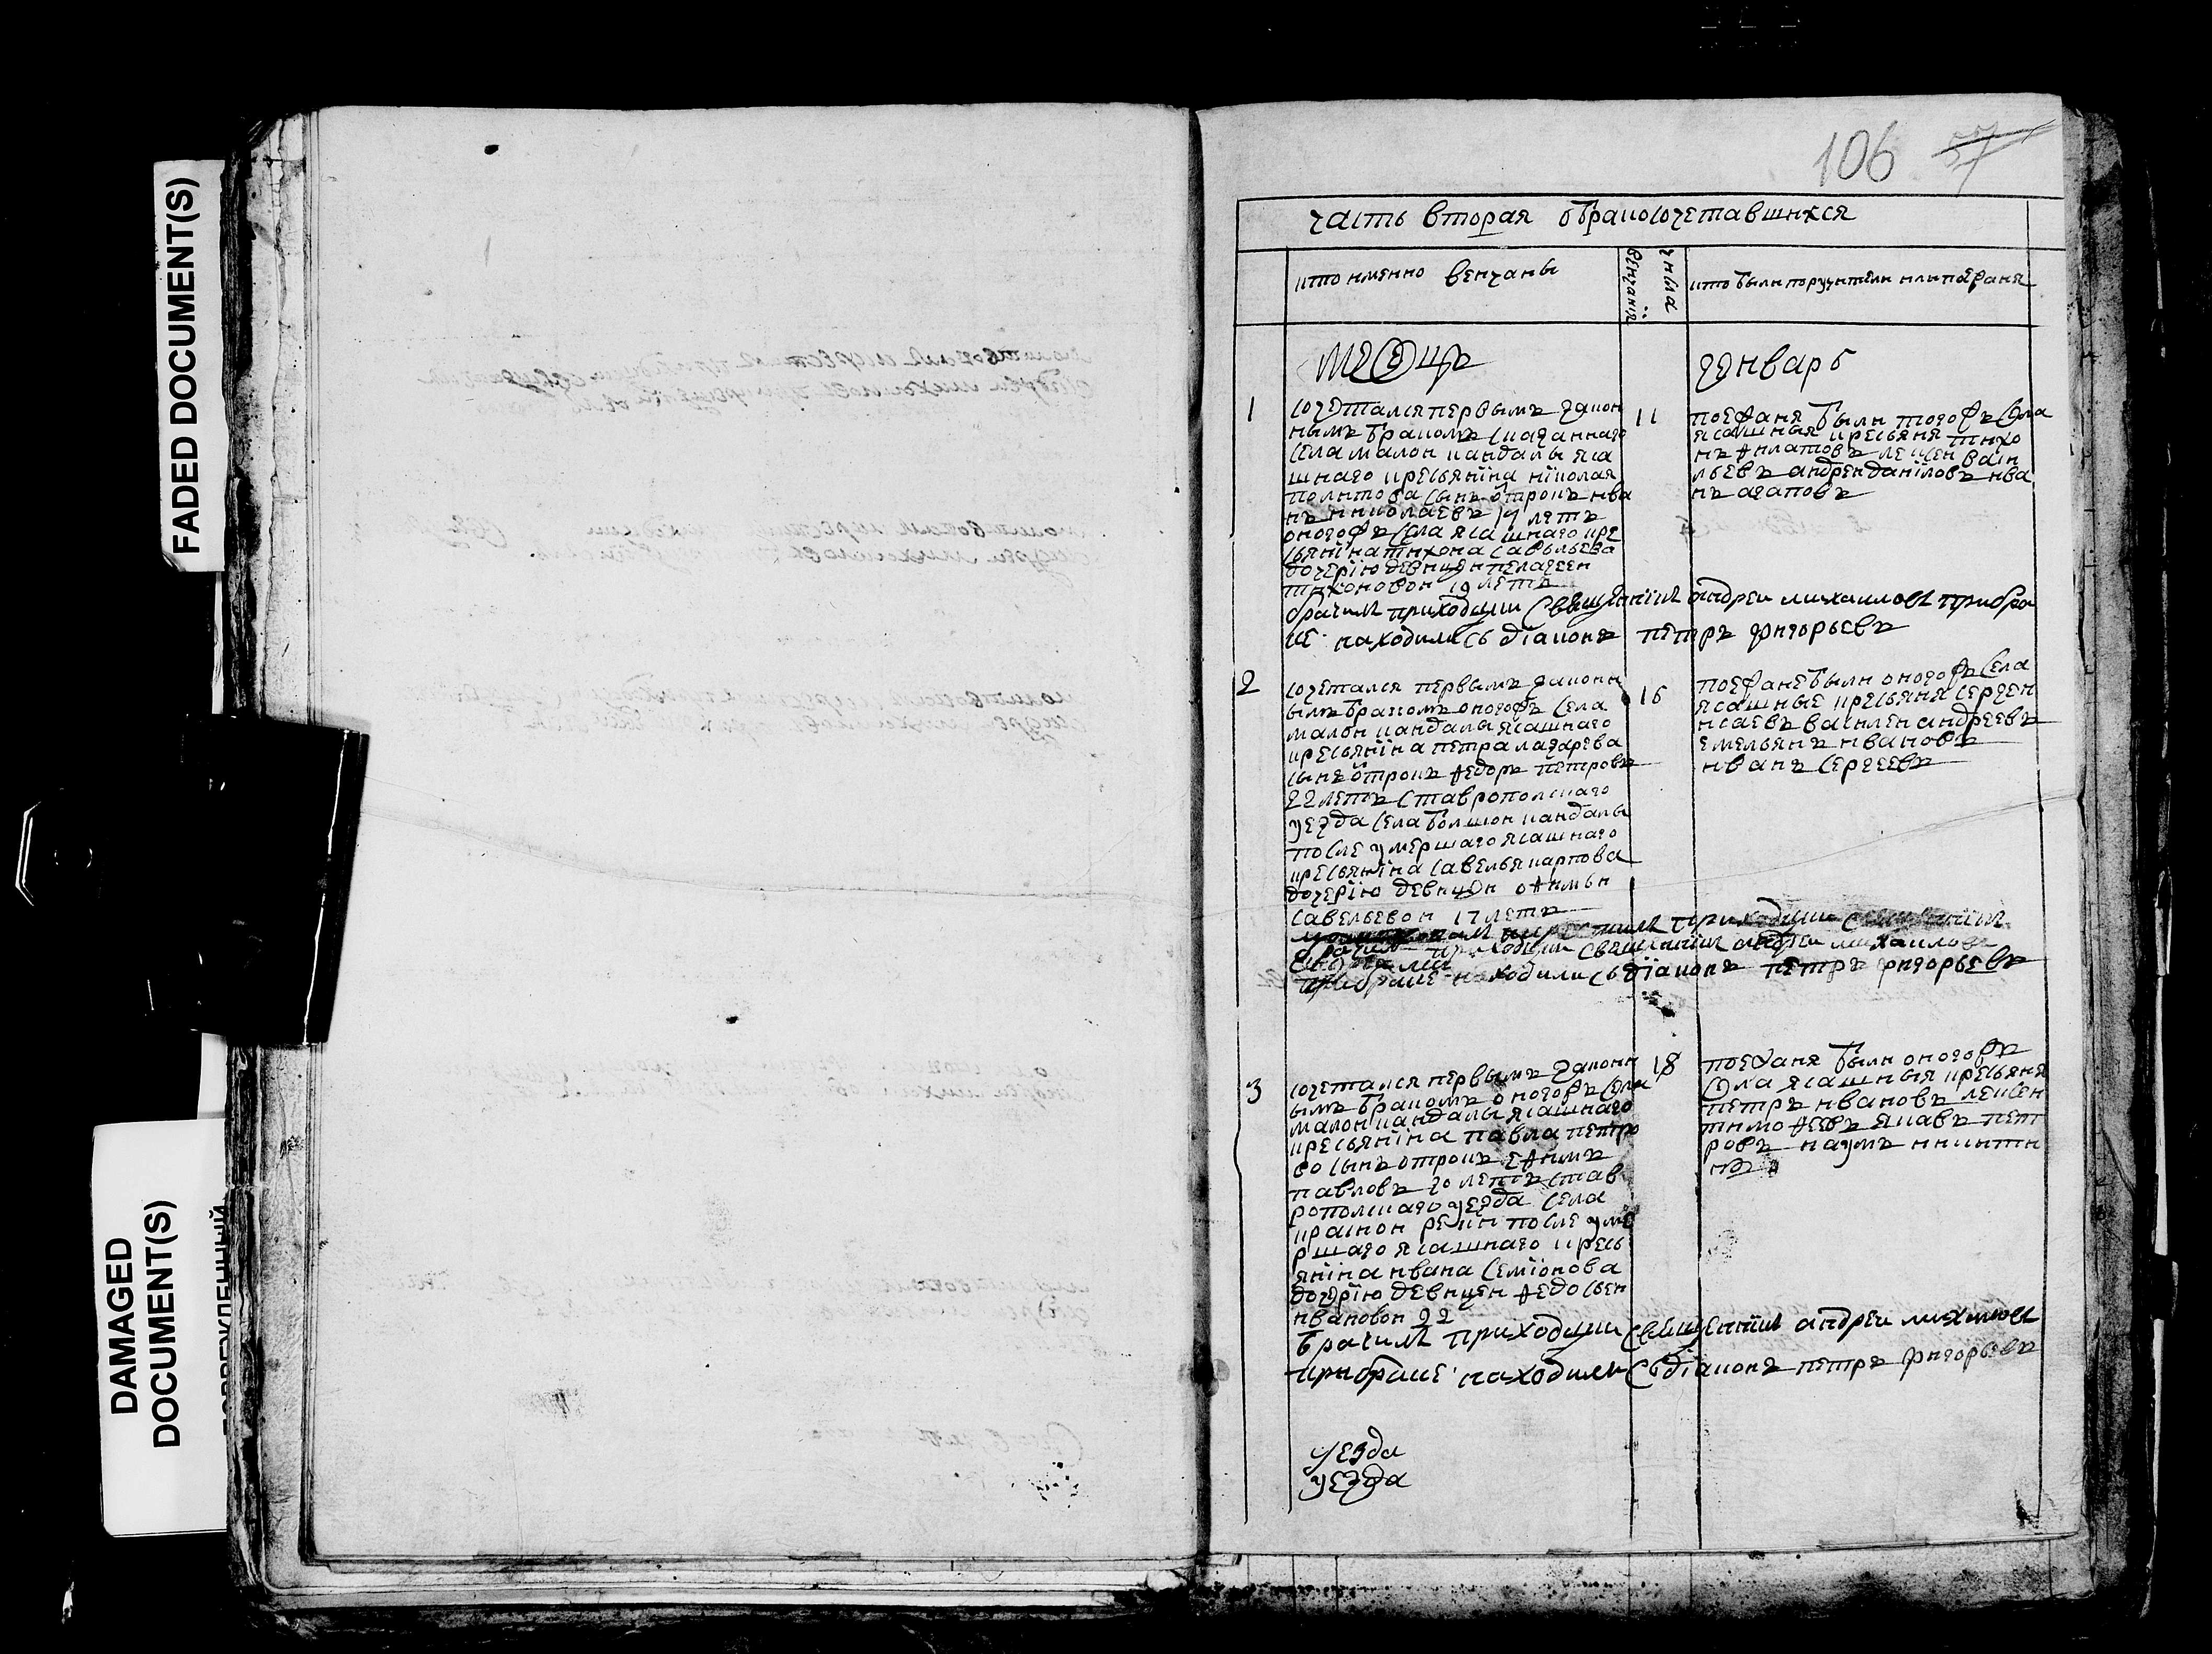 FADED DOCUMENT(S)
DAMAGED
DOCUMENT(S)
106 57
часть вторая обракосочетавшихся
кто имянно венчаны
числа
венчания
кто были поручители или поежаня
месецъ
генварь
1
сочетался первымъ закон
нымъ бракомъ сказаннаго
села малои кандалы яса
шнаго кресьянїна нїколая
политова сынъ отрокъ ива
нъ николаевъ 19 летъ
оногожъ села ясашнаго кре
сьянїна тихона савельева
дочерїю девицеи пелагееи
тихоновои 19 летъ
11
поежаня были тогожъ села
ясашныя кресьяня тихо
нъ филатовъ лексеи васи
льевъ андреи данїловъ ива
нъ агаповъ
брачилъ приходцки священникъ андреи михаиловъ прибра
ке находились дїаконъ петръ григорьевъ
2
сочетался первымъ законн
ымъ бракомъ оногожъ села
малои кандалы ясашнаго
кресьянїна петра лазарева
сынъ отрокъ федоръ петровъ
22 летъ ставрополскаго
уезда села болшои кандалы
после умершаго ясашнаго
кресьянїна савелья карпова
дочерїю девицеи офимьи
савельевои 17 летъ
16
поежане были оногожъ села
ясашные кресьяня сергеи
исаевъ василеи андреевъ
емельянъ ивановъ
иванъ сергеевъ
брачилъ приходцки священникъ андреи михаиловъ
прибраке находились дїаконъ петръ григорьевъ
3
сочетался первымъ законн
ымъ бракомъ оногожъ села
малои кандалы ясашнаго
кресьянїна павла петро
во сынъ отрокъ ефимъ
павловъ 20 летъ став
рополскаго уезда села
краснои реки после уме
ршаго ясашнаго кресь
янїна ивана семїонова
дочерїю девицеи федосьеи
ивановои 22
18
поежаня были оногожъ
села ясашныя кресьяня
петръ ивановъ лексеи
тимофеевъ яковъ пет
ровъ наумъ никити
нъ
брачилъ приходцки священникъ андреи михаиловъ
прибраке находились дїаконъ петръ григорьевъ
уезда
уезда